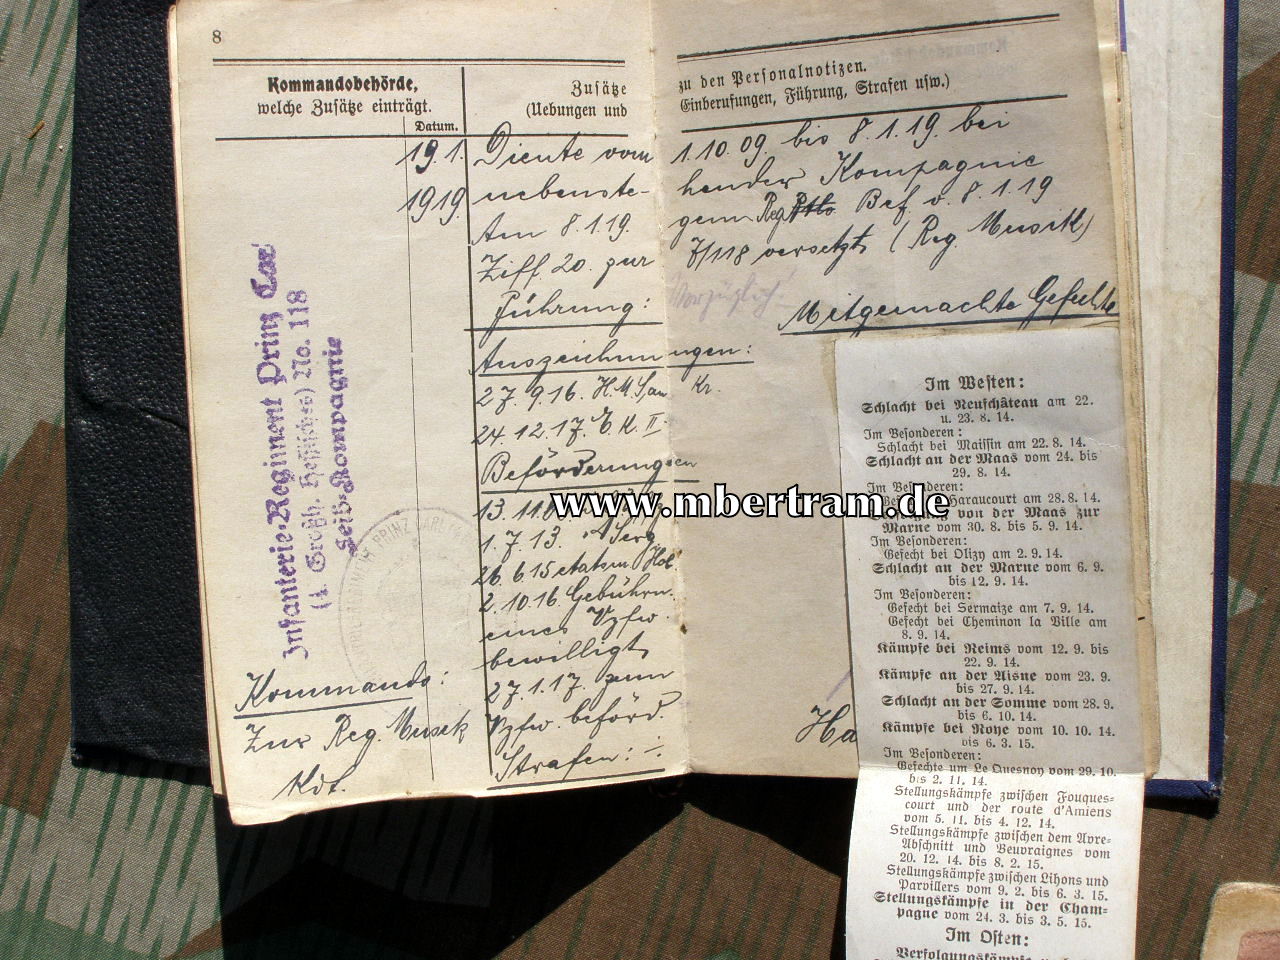 8
Kommandobehörde,
welche Zusätze einträgt.
Datum.
Zusätze zu den Personalnotizen.
(Uebungen und Einberufungen, Führung, Strafen usw.)
19.1. Diente vom 1.10.09. bis 8.1.19. bei
1919. nebenste- hender Kompagnie
Am 8.1.19. gem. Reg. Bef. v. 8.1.19
Ziff 20. zur 7/118 versetzt (Reg. Musik)
Führung: Vorzüglich.
Mitgemachte Gefechte
Auszeichnungen:
27.9.16. H. M. San Kr.
24.12.17. E. K. II.
Beförderungen
1.7.13. Serg.
26.6.15 etatsm.
2.10.16 Gebührn.
eines Vzfw.
bewilligt
27.1.17. zum
Vzfw. beförd.
Strafen: ∴
Infanterie-Regiment Prinz Carl
(4. Großh. Hessisches) No. 118
Kompagnie
Kommando:
Zur Reg. Musik
Kdt.
Ha
www.mbertram.de
Im Westen:
Schlacht bei Neufchâteau am 22.
u. 23. 8. 14.
Im Besonderen:
Schlacht bei Maissin am 22. 8. 14.
Schlacht an der Maas vom 24. bis
29. 8. 14.
Im Besonderen:
Haraucourt am 28. 8. 14.
von der Maas zur
Marne vom 30. 8. bis 5. 9. 14.
Im Besonderen:
Gefecht bei Olizy am 2. 9. 14.
Schlacht an der Marne vom 6. 9.
bis 12. 9. 14.
Im Besonderen:
Gefecht bei Sermaize am 7. 9. 14.
Gefecht bei Cheminon la Ville am
8. 9. 14.
Kämpfe bei Reims vom 12. 9. bis
22. 9. 14.
Kämpfe an der Aisne vom 23. 9.
bis 27. 9. 14.
Schlacht an der Somme vom 28. 9.
bis 6. 10. 14.
Kämpfe bei Roye vom 10. 10. 14.
bis 6. 3. 15.
Im Besonderen:
Gefechte um Le Quesnoy vom 29. 10.
bis 2. 11. 14.
Stellungskämpfe zwischen Fouques-
court und der route d'Amiens
vom 5. 11. bis 4. 12. 14.
Stellungskämpfe zwischen dem Avre-
Abschnitt und Beuvraignes vom
20. 12. 14. bis 8. 2. 15.
Stellungskämpfe zwischen Lihons und
Parvillers vom 9. 2. bis 6. 3. 15.
Stellungskämpfe in der Cham-
pagne vom 24. 3. bis 3. 5. 15.
Im Osten: